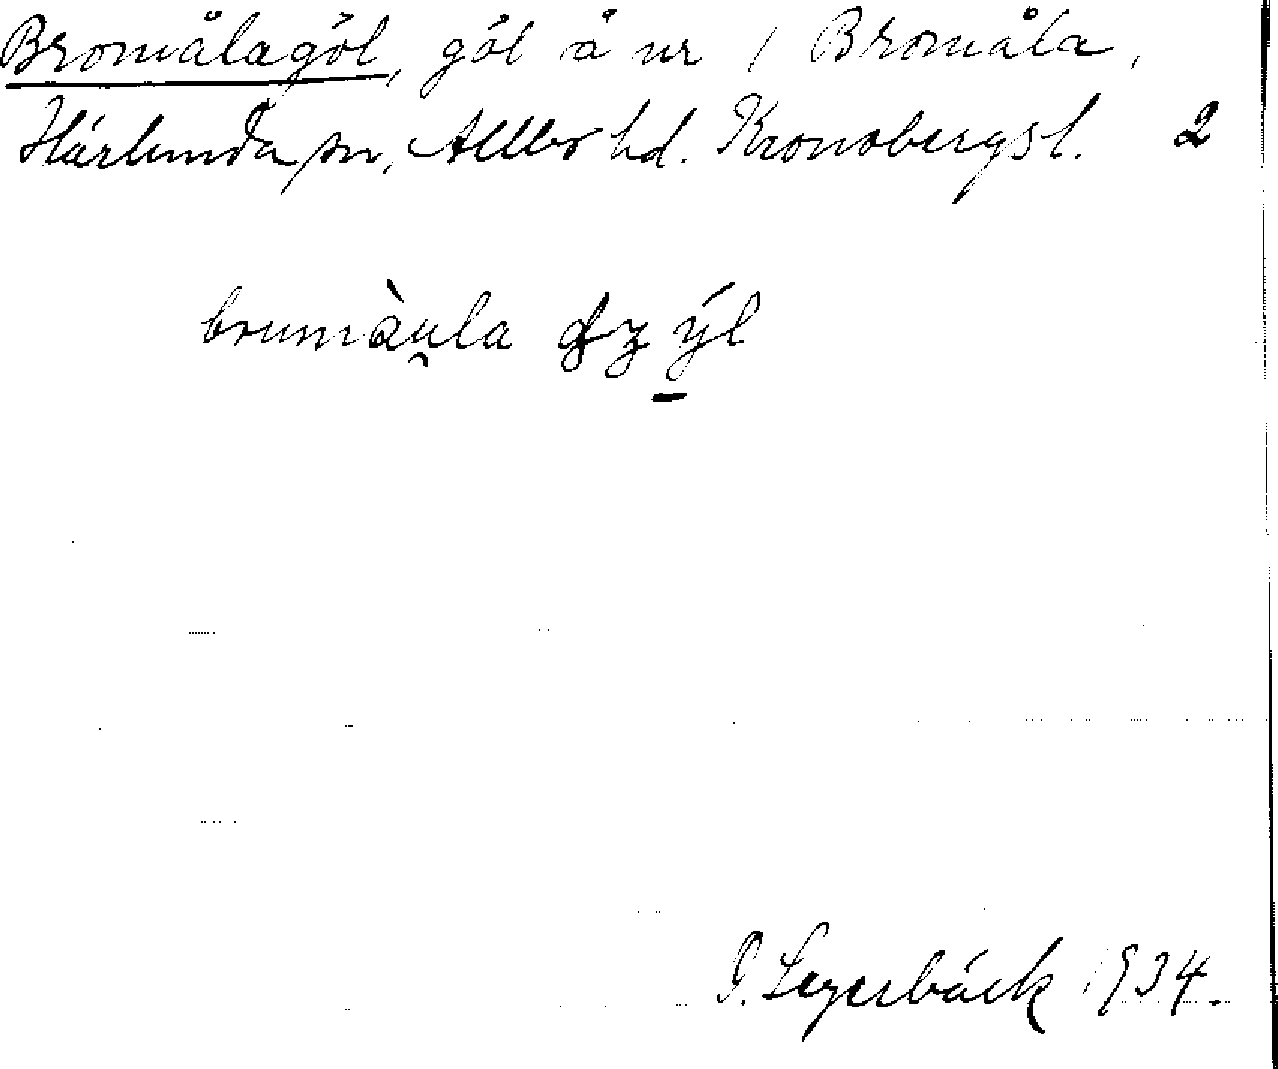 Bromålagöl, göl å nr 1 Bromåla,
Härlunda sn, Allbo hd. Kronobergs l. 2
brumàu̯la
I. Lagerbäck 1934.